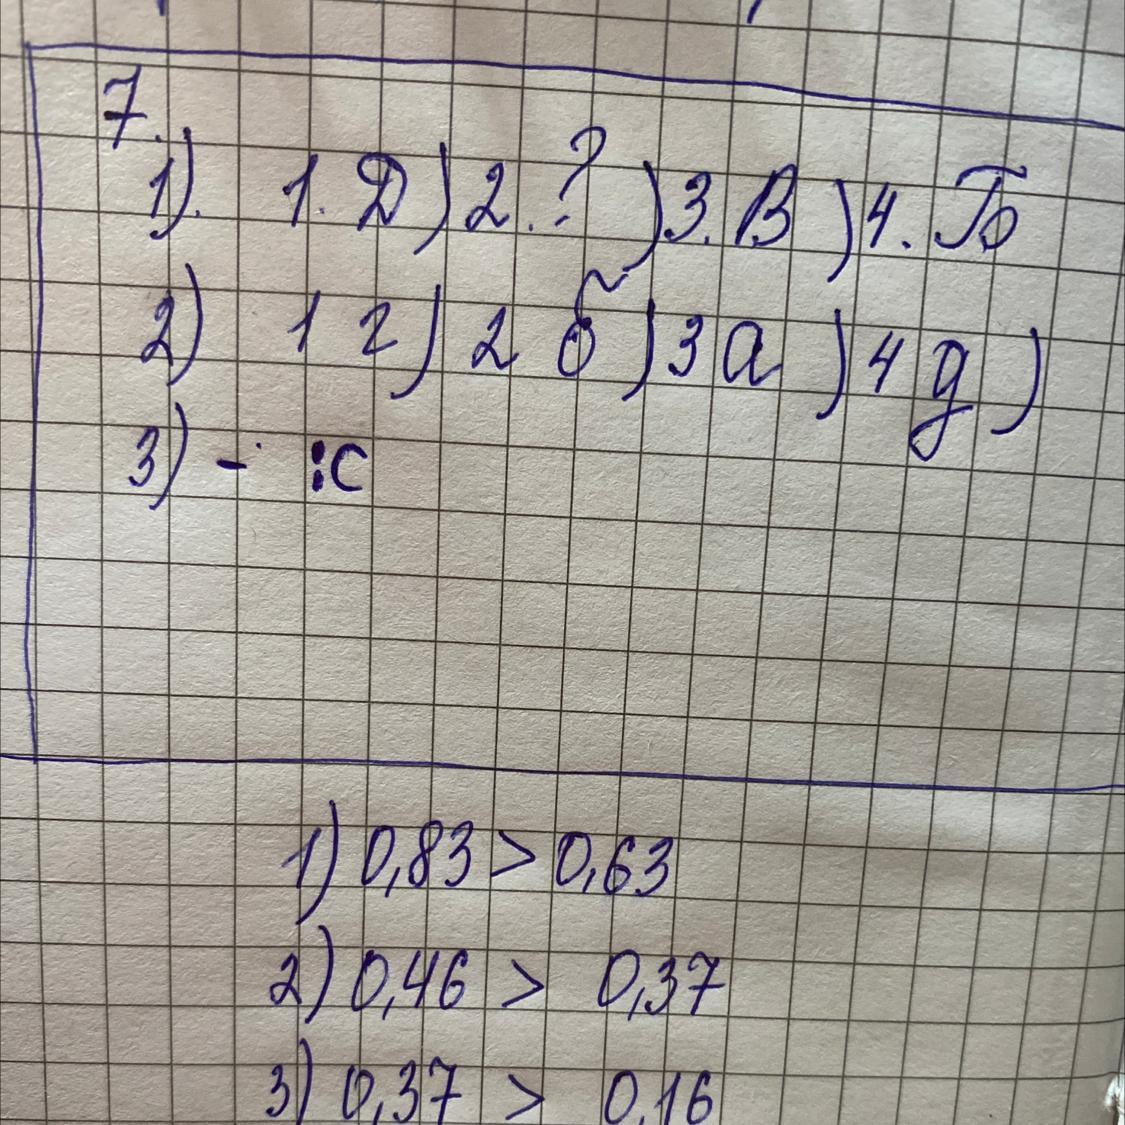 7.
1). 1. Д) 2. ?) 3. В) 4. Б
2) 1 г) 2 б) 3 а) 4 д)
3) - :с
1) 0,83 > 0,63
2) 0,46 > 0,37
3) 0,37 > 0,16